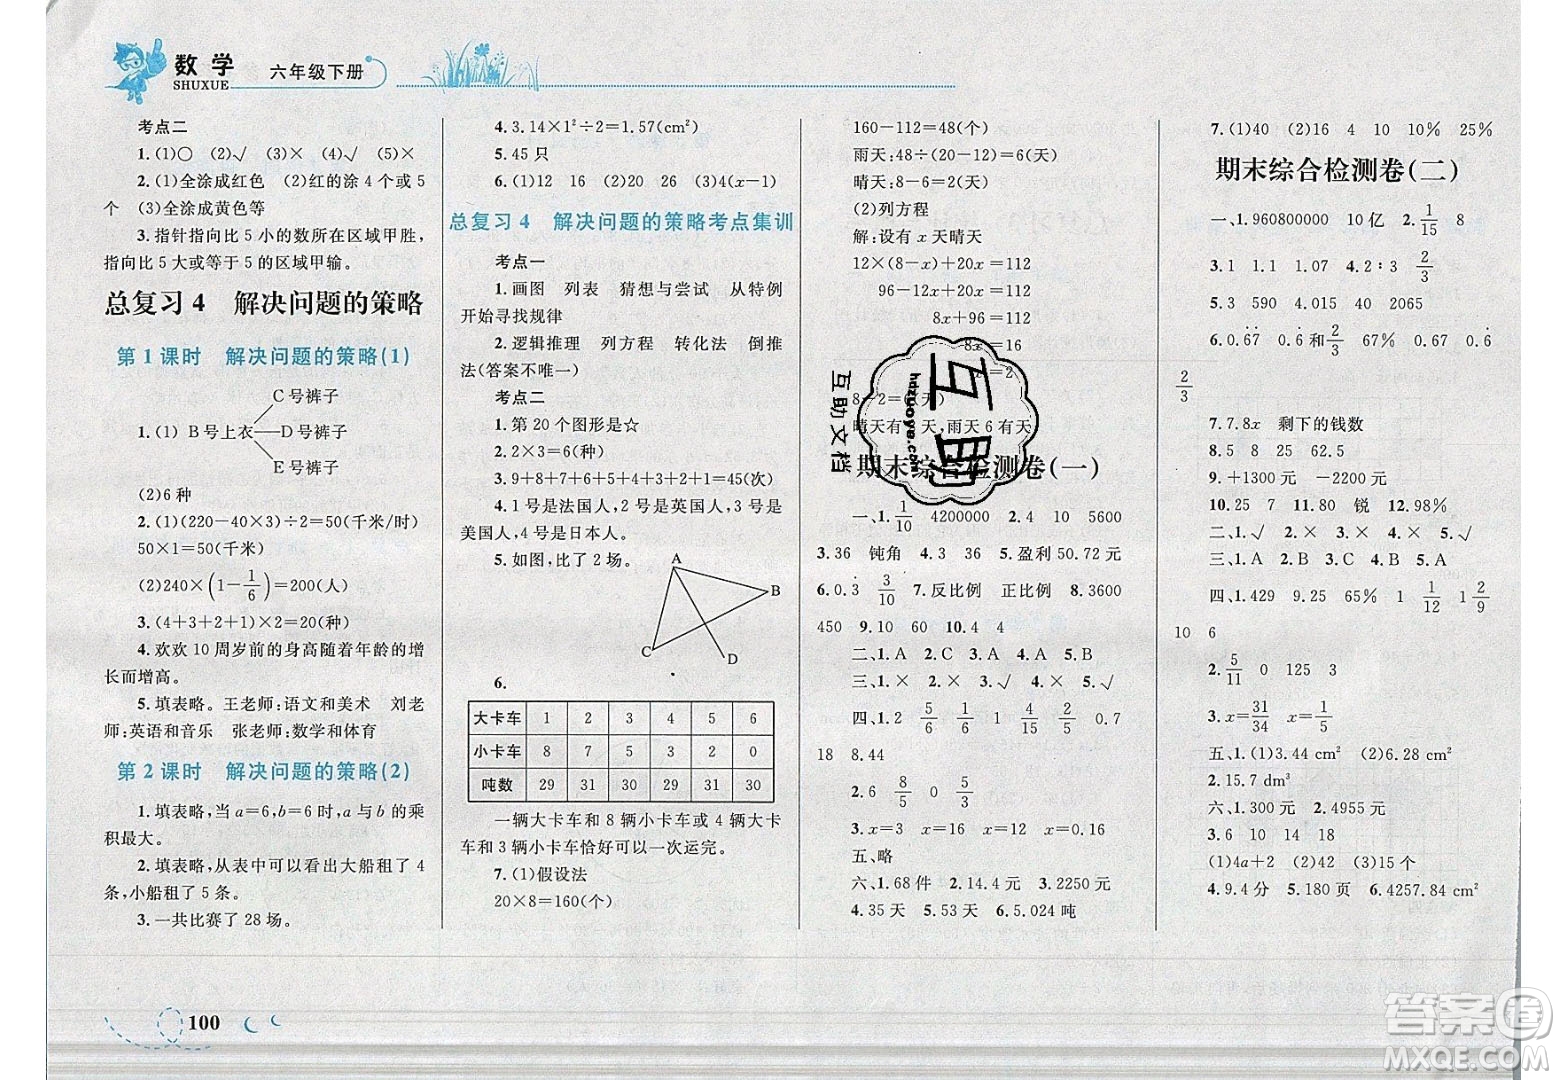 数学
SHUXUE
六年级下册
考点二
1.(1)○ (2)√ (3)× (4)√ (5)×
2.(1)全涂成红色 (2)红的涂 4 个或 5
个 (3)全涂成黄色等
3.指针指向比 5 小的数所在区域甲胜,
指向比 5 大或等于 5 的区域甲输。
总复习 4 解决问题的策略
第 1 课时 解决问题的策略(1)
C 号裤子
1.(1) B 号上衣 D 号裤子
E 号裤子
(2)6 种
2.(1)(220-40×3)÷2=50(千米/时)
50×1=50(千米)
(2)240×(1-1/6)=200(人)
3.(4+3+2+1)×2=20(种)
4.欢欢 10 周岁前的身高随着年龄的增
长而增高。
5.填表略。王老师:语文和美术 刘老
师:英语和音乐 张老师:数学和体育
第 2 课时 解决问题的策略(2)
1.填表略,当 a=6,b=6 时,a 与 b 的乘
积最大。
2.填表略,从表中可以看出大船租了 4
条,小船租了 5 条。
3.一共比赛了 28 场。
4.3.14×1²÷2=1.57(cm²)
5.45 只
6.(1)12 16 (2)20 26 (3)4(x-1)
总复习 4 解决问题的策略考点集训
考点一
1.画图 列表 猜想与尝试 从特例
开始寻找规律
2.逻辑推理 列方程 转化法 倒推
法(答案不唯一)
考点二
1.第 20 个图形是☆
2.2×3=6(种)
3.9+8+7+6+5+4+3+2+1=45(次)
4.1 号是法国人,2 号是英国人,3 号是
美国人,4 号是日本人。
5.如图,比了 2 场。
A
B
C
D
6.
大卡车 1 2 3 4 5 6
小卡车 8 7 5 3 2 0
吨数 29 31 30 29 31 30
一辆大卡车和 8 辆小卡车或 4 辆大卡
车和 3 辆小卡车恰好可以一次运完。
7.(1)假设法
20×8=160(个)
160-112=48(个)
雨天:48÷(20-12)=6(天)
晴天:8-6=2(天)
(2)列方程
解:设有 x 天晴天
12×(8-x)+20x=112
96-12x+20x=112
8x+96=112
8x=16
x=2
8-2=(天)
晴天有 天,雨天 6 有天
期末综合检测卷(一)
一、1.1/10 4200000 2.4 10 5600
3.36 钝角 4.3 36 5.盈利 50.72 元
6.0.3̇ 3/10 7.反比例 正比例 8.3600
450 9.10 60 10.4 4
二、1.A 2.C 3.C 4.A 5.B
三、1.× 2.× 3.√ 4.× 5.√
四、1.2 5/6 1/6 1 4/15 2/5 0.7
18 8.44
2.6 8/5 0 5/3
3.x=3 x=1/9 x=5/2
五、略
六、1.68 件 2.14.4 元 3.2250 元
4.35 天 5.53 天 6.5.024 吨
7.(1)40 (2)16 4 10 10% 25%
期末综合检测卷(二)
一、1.960800000 10 亿 2.1/15 8
3.1 1.1 1.07 4.2∶3 2/3
5.3 590 4.015 40 2065
6.0.6̇7̇ 0.6̇ 和 2/3 67% 0.67 0.6̇
2/3
7.7.8x 剩下的钱数
8.5 8 25 62.5
9.+1300 元 -2200 元
10.25 7 11.80 锐 12.98%
二、1.√ 2.× 3.× 4.× 5.√
三、1.A 2.B 3.C 4.B 5.A
四、1.429 9.25 65% 1 1/12 1 2/9
10 6
2.5/11 0 125 3
3.x=31/34 x=1/5
五、1.(1)3.44 cm² (2)6.28 cm²
2.15.7 dm²
六、1.300 元 2.4955 元
3.6 10 14 18
(1)4a+2 (2)42 (3)15 个
4.9.4 分 5.180 页 6.4257.84 cm²
互助
hdzuoye.com
互助文档
100
答案圈
MXQE.COM